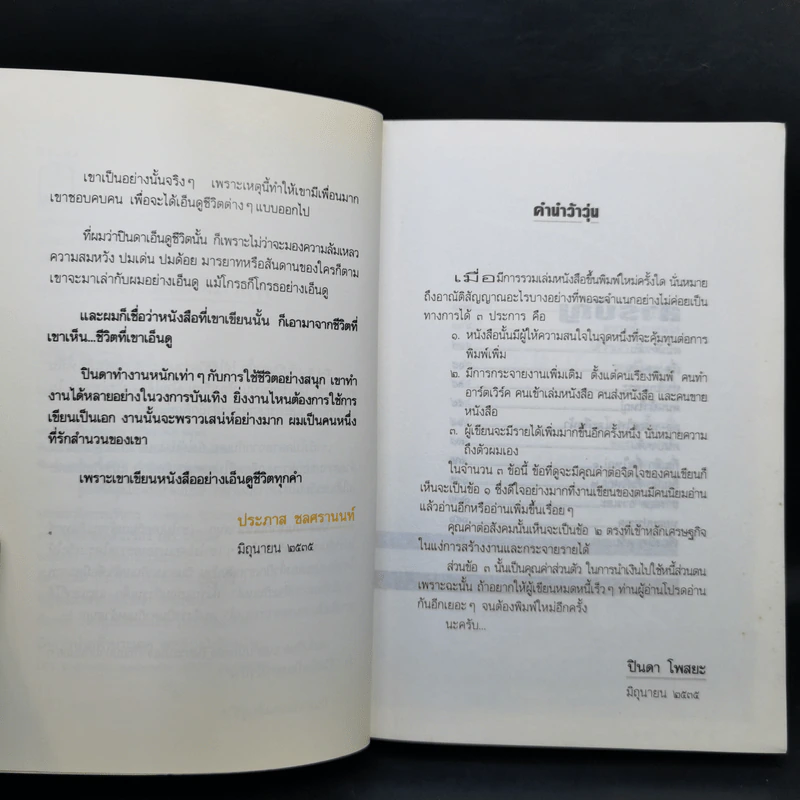 เขาเป็นอย่างนั้นจริงๆ เพราะเหตุนี้ทำให้เขามีเพื่อนมาก
เขาชอบคบคน เพื่อจะได้เอ็นดูชีวิตต่างๆ แบบออกไป
ที่ผมว่าปินดาเอ็นดูชีวิตนั้น ก็เพราะไม่ว่าจะมองความล้มเหลว
ความสมหวัง ปมเด่น ปมด้อย มารยาทหรือสันดานของใครก็ตาม
เขาจะมาเล่ากับผมอย่างเอ็นดู แม้โกรธก็โกรธอย่างเอ็นดู
และผมก็เชื่อว่าหนังสือที่เขาเขียนนั้น ก็เอามาจากชีวิตที่
เขาเห็น...ชีวิตที่เขาเอ็นดู
ปินดาทำงานหนักเท่าๆ กับการใช้ชีวิตอย่างสนุก เขาทำ
งานได้หลายอย่างในวงการบันเทิง ยิ่งงานไหนต้องการใช้การ
เขียนเป็นเอก งานนั้นจะพราวเสน่ห์อย่างมาก ผมเป็นคนหนึ่ง
ที่รักสำนวนของเขา
เพราะเขาเขียนหนังสืออย่างเอ็นดูชีวิตทุกคำ
ประภาส ชลศรานนท์
มิถุนายน ๒๕๓๕
คำนำว้าวุ่น
เมื่อมีการรวมเล่มหนังสือขึ้นพิมพ์ใหม่ครั้งใด นั่นหมาย
ถึงอาณัติสัญญาณอะไรบางอย่างที่พอจะจำแนกอย่างไม่ค่อยเป็น
ทางการได้ ๓ ประการ คือ
๑. หนังสือนั้นมีผู้ให้ความสนใจในจุดหนึ่งที่จะคุ้มทุนต่อการ
พิมพ์เพิ่ม
๒. มีการกระจายงานเพิ่มเติม ตั้งแต่คนเรียงพิมพ์ คนทำ
อาร์ตเวิร์ค คนเข้าเล่มหนังสือ คนส่งหนังสือ และคนขาย
หนังสือ
๓. ผู้เขียนจะมีรายได้เพิ่มมากขึ้นอีกครั้งหนึ่ง นั่นหมายความ
ถึงตัวผมเอง
ในจำนวน ๓ ข้อนี้ ข้อที่ดูจะมีคุณค่าต่อจิตใจของคนเขียนก็
เห็นจะเป็นข้อ ๑ ซึ่งดีใจอย่างมากที่งานเขียนของตนมีคนนิยมอ่าน
แล้วอ่านอีกหรืออ่านเพิ่มขึ้นเรื่อยๆ
คุณค่าต่อสังคมนั้นเห็นจะเป็นข้อ ๒ ตรงที่เข้าหลักเศรษฐกิจ
ในแง่การสร้างงานและกระจายรายได้
ส่วนข้อ ๓ นั้นเป็นคุณค่าส่วนตัว ในการนำเงินไปใช้หนี้ส่วนตน
เพราะฉะนั้น ถ้าอยากให้ผู้เขียนหมดหนี้เร็วๆ ท่านผู้อ่านโปรดอ่าน
กันอีกเยอะๆ จนต้องพิมพ์ใหม่อีกครั้ง
นะครับ...
ปินดา โพสยะ
มิถุนายน ๒๕๓๕